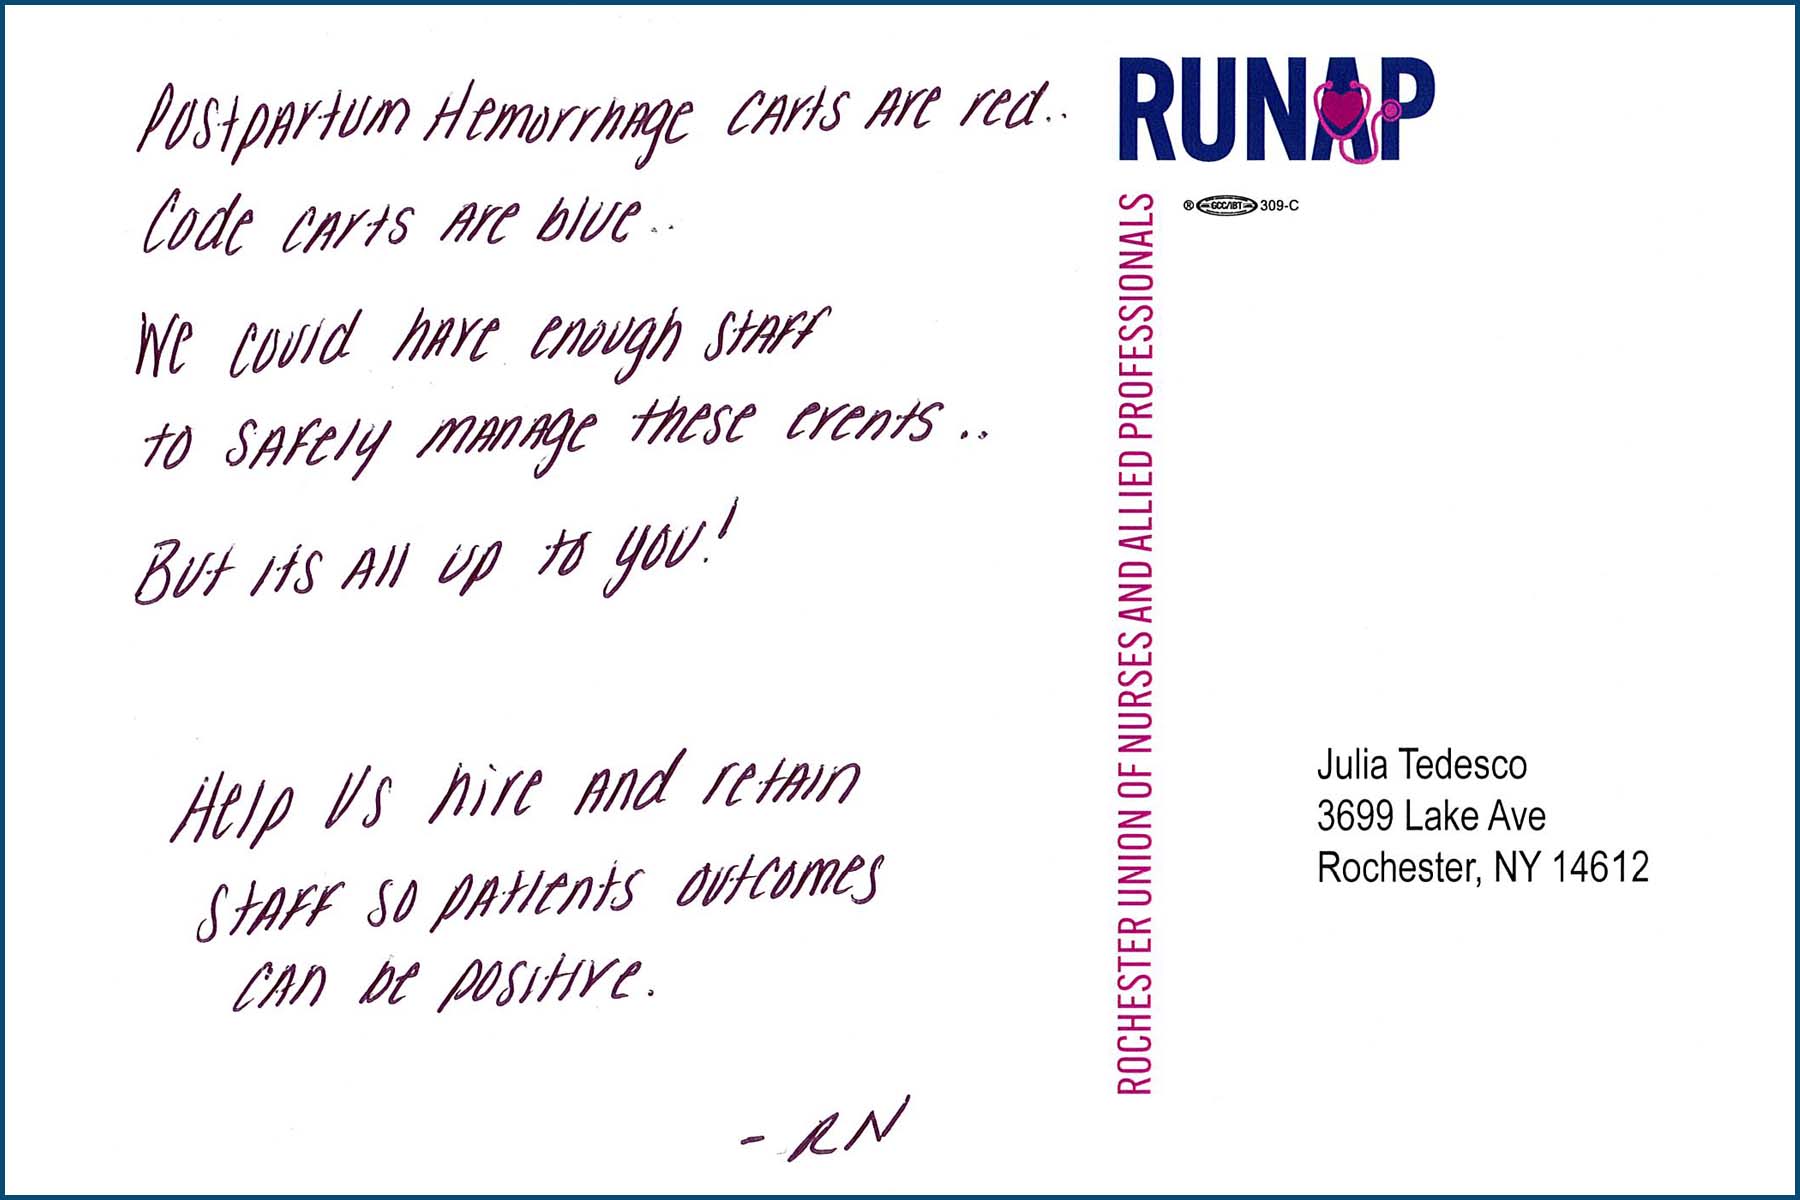 Postpartum Hemorrhage carts are red..
Code carts are blue..
We could have enough staff
to safely manage these events..
But its all up to you!
Help Us hire and retain
staff so patients outcomes
can be positive.
- RN
RUNAP
® GCC/IBT 309-C
ROCHESTER UNION OF NURSES AND ALLIED PROFESSIONALS
Julia Tedesco
3699 Lake Ave
Rochester, NY 14612